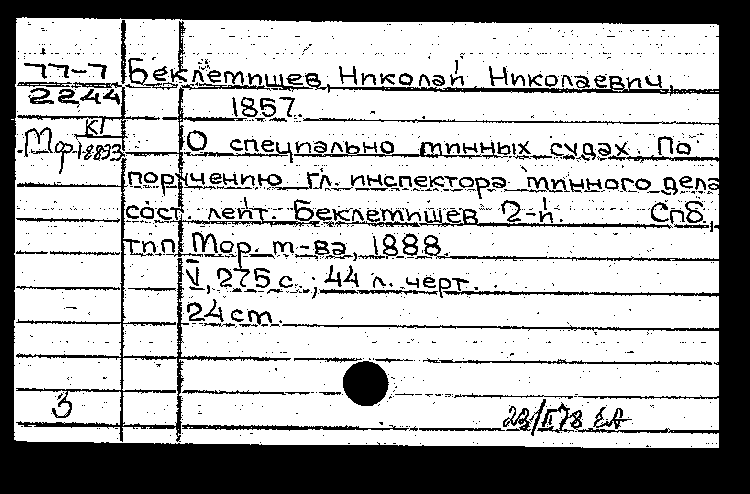 77-7 Беклемишев, Николай Николаевич,
22.44 1857.
Мор. К1/18893 О специально минных судах. По
поручению гл. инспектора минного дела
сост. лейт. Беклемишев 2-й. Спб,
тип Мор. м-ва, 1888.
V, 275 с.; 44 л. черт.
24 cm.
3
23/II 78